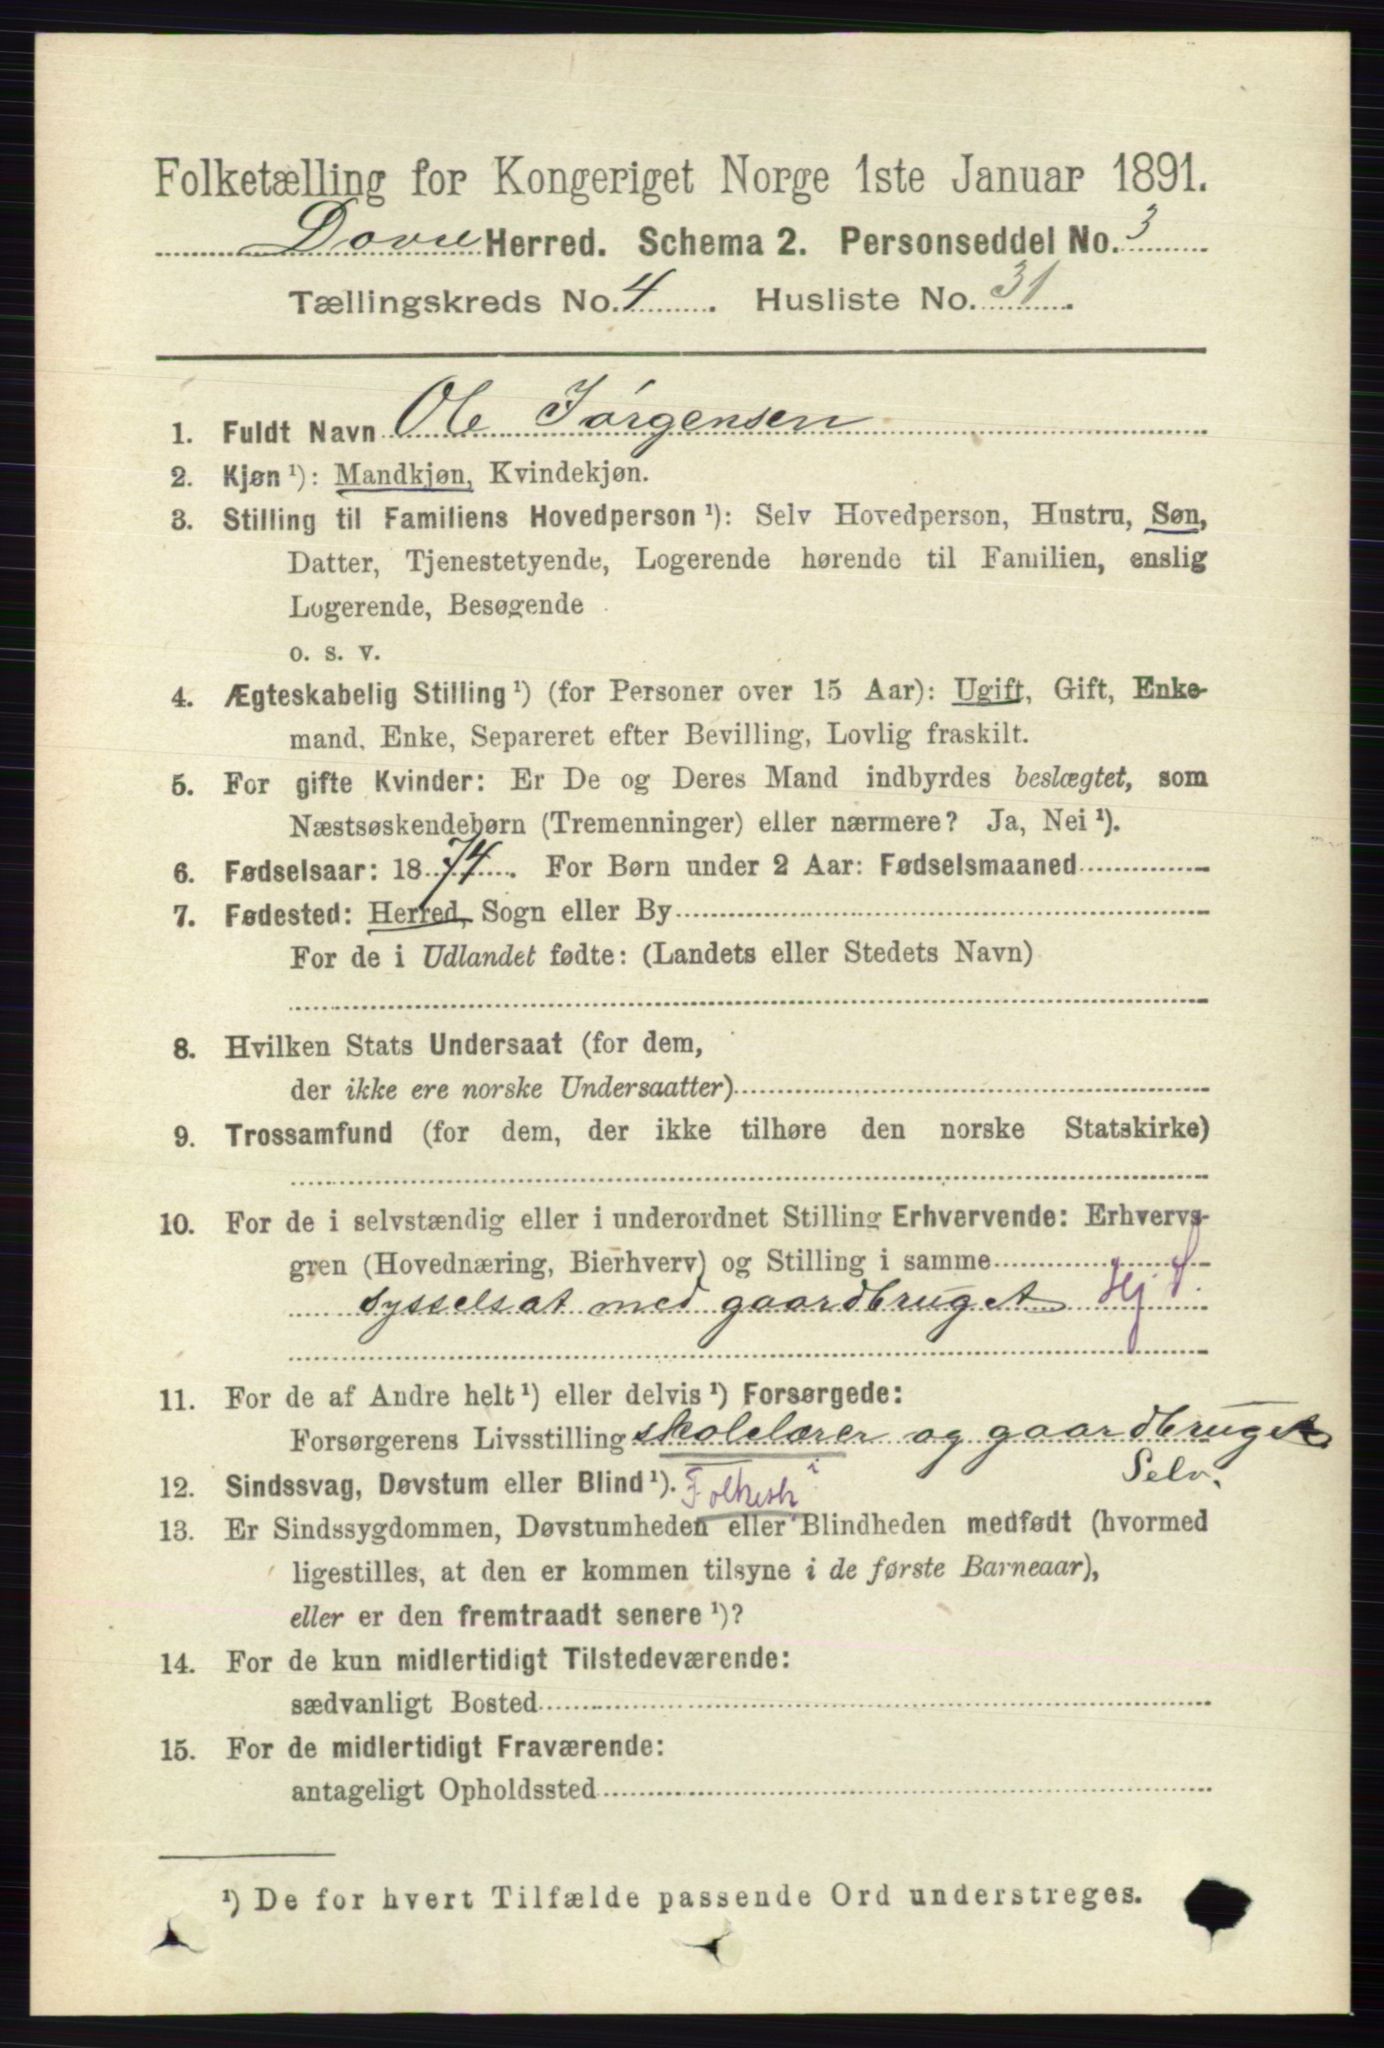 Folketælling for Kongeriget Norge 1ste Januar 1891.
Dovre Herred. Schema 2. Personseddel No. 3
Tællingskreds No. 4. Husliste No. 31.
1. Fuldt Navn Ole Jørgensen
2. Kjøn ¹): Mandkjøn, Kvindekjøn.
3. Stilling til Familiens Hovedperson ¹): Selv Hovedperson, Hustru, Søn,
Datter, Tjenestetyende, Logerende hørende til Familien, enslig
Logerende, Besøgende
o. s. v.
4. Ægteskabelig Stilling ¹) (for Personer over 15 Aar): Ugift, Gift, Enke-
mand, Enke, Separeret efter Bevilling, Lovlig fraskilt.
5. For gifte Kvinder: Er De og Deres Mand indbyrdes beslægtet, som
Næstsøskendebørn (Tremenninger) eller nærmere? Ja, Nei ¹).
6. Fødselsaar: 1874. For Børn under 2 Aar: Fødselsmaaned
7. Fødested: Herred, Sogn eller By
For de i Udlandet fødte: (Landets eller Stedets Navn)
8. Hvilken Stats Undersaat (for dem,
der ikke ere norske Undersaatter)
9. Trossamfund (for dem, der ikke tilhøre den norske Statskirke)
10. For de i selvstændig eller i underordnet Stilling Erhvervende: Erhvervs-
gren (Hovednæring, Bierhverv) og Stilling i samme
sysselsat med gaardbruget Hj
11. For de af Andre helt ¹) eller delvis ¹) Forsørgede:
Forsørgerens Livsstilling skolelærer og gaardbruger
Selv.
12. Sindssvag, Døvstum eller Blind ¹). Folkesk
13. Er Sindssygdommen, Døvstumheden eller Blindheden medfødt (hvormed
ligestilles, at den er kommen tilsyne i de første Barneaar),
eller er den fremtraadt senere ¹)?
14. For de kun midlertidigt Tilstedeværende:
sædvanligt Bosted
15. For de midlertidigt Fraværende:
antageligt Opholdssted
¹) De for hvert Tilfælde passende Ord understreges.